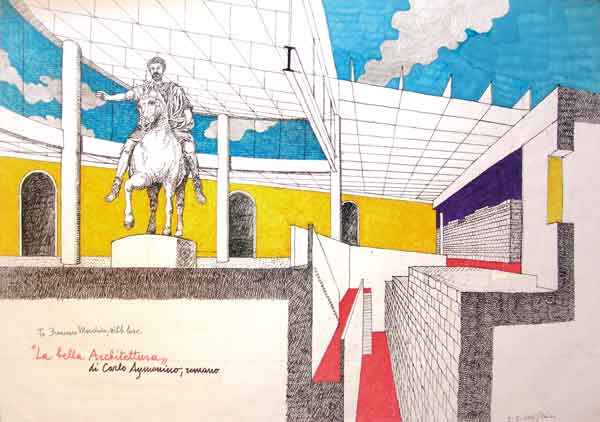 I
To Francesco Moschini, with love.
"La bella Architettura„
di Carlo Aymonino, romano